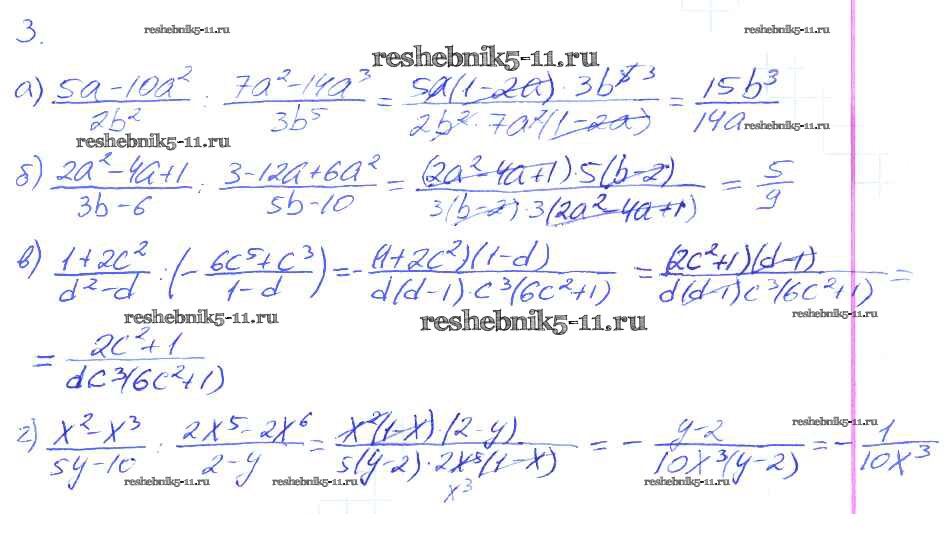 3. reshebnik5-11.ru reshebnik5-11.ru
reshebnik5-11.ru
а) (5a-10a²)/(2b²) : (7a²-14a³)/(3b⁵) = (5a(1-2a)·3b⁵ ³)/(2b²·7a²(1-2a)) = 15b³/14a
reshebnik5-11.ru reshebnik5-11.ru
б) (2a²-4a+1)/(3b-6) : (3-12a+6a²)/(5b-10) = ((2a²-4a+1)·5(b-2))/(3(b-2)·3(2a²-4a+1)) = 5/9
в) (1+2c²)/(d²-d) : (-(6c⁵+c³)/(1-d)) = -((1+2c²)(1-d))/(d(d-1)·c³(6c²+1)) = ((2c²+1)(d-1))/(d(d-1)c³(6c²+1)) =
reshebnik5-11.ru reshebnik5-11.ru reshebnik5-11.ru
= (2c²+1)/(dc³(6c²+1))
reshebnik5-11.ru
г) (x²-x³)/(5y-10) : (2x⁵-2x⁶)/(2-y) = (x²(1-x)·(2-y))/(5(y-2)·2x⁵(1-x)) = -(y-2)/(10x³(y-2)) = -1/(10x³)
x³
reshebnik5-11.ru reshebnik5-11.ru reshebnik5-11.ru reshebnik5-11.ru